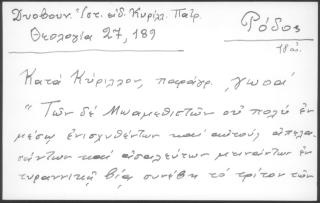 Δυοβουν. Ἱστ. εἰδ. Κυρίλλ. Πατρ.
Θεολογία 27, 189
Ρόδος
18 αἰ.
Κατά Κύριλλον, παράγρ. , γωσαί
"Τῶν δέ Μωαμεθιστῶν οὐ πολύ ἐν
μέσῳ ἐνισχυθέντων καί αὐτούς,
σάντων καί ἀσαλεύτων μεινάντων ἐν
τυραννικῇ βίᾳ συνέβη τό τρίτον τῶν